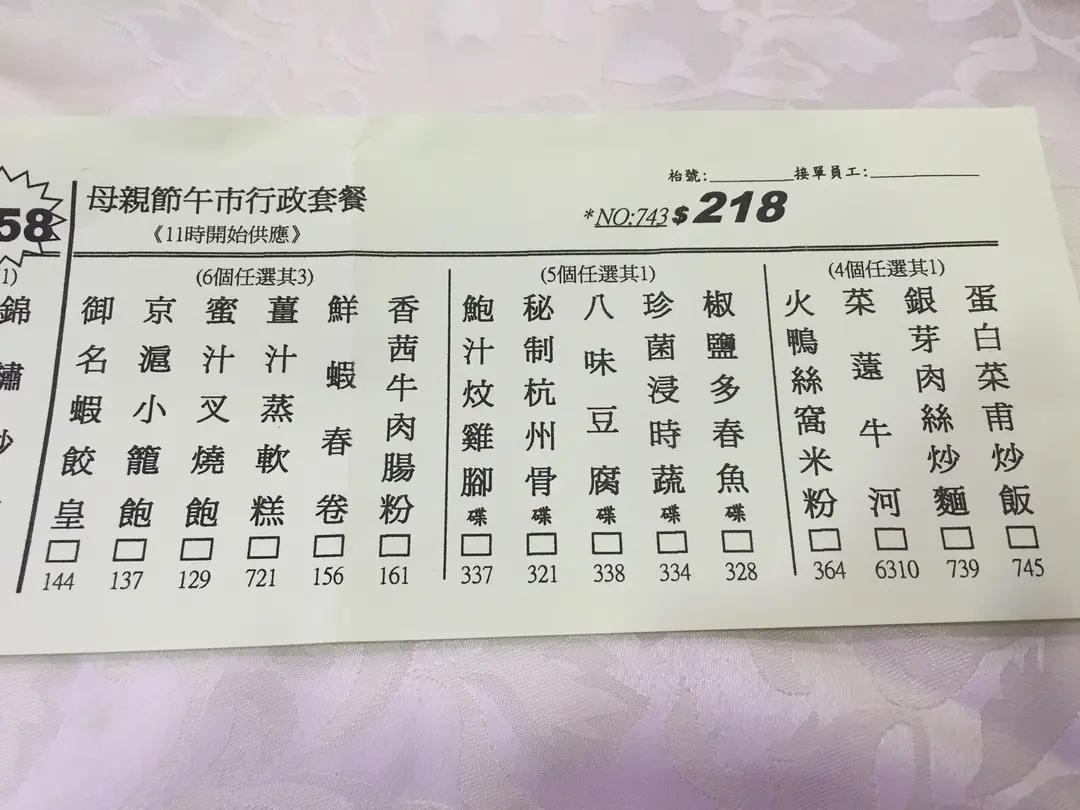 58
母親節午市行政套餐
《11時開始供應》
枱號:________接單員工:__________
*NO:743 $218
1)
錦
繡
(6個任選其3)
御名蝦餃皇
京滬小籠飽
蜜汁叉燒飽
薑汁蒸軟糕
鮮蝦春卷
香茜牛肉腸粉
144 137 129 721 156 161
(5個任選其1)
鮑汁炆雞腳碟
秘制杭州骨碟
八味豆腐碟
珍菌浸時蔬碟
椒鹽多春魚碟
337 321 338 334 328
(4個任選其1)
火鴨絲窩米粉
菜薳牛河
銀芽肉絲炒麵
蛋白菜甫炒飯
364 6310 739 745